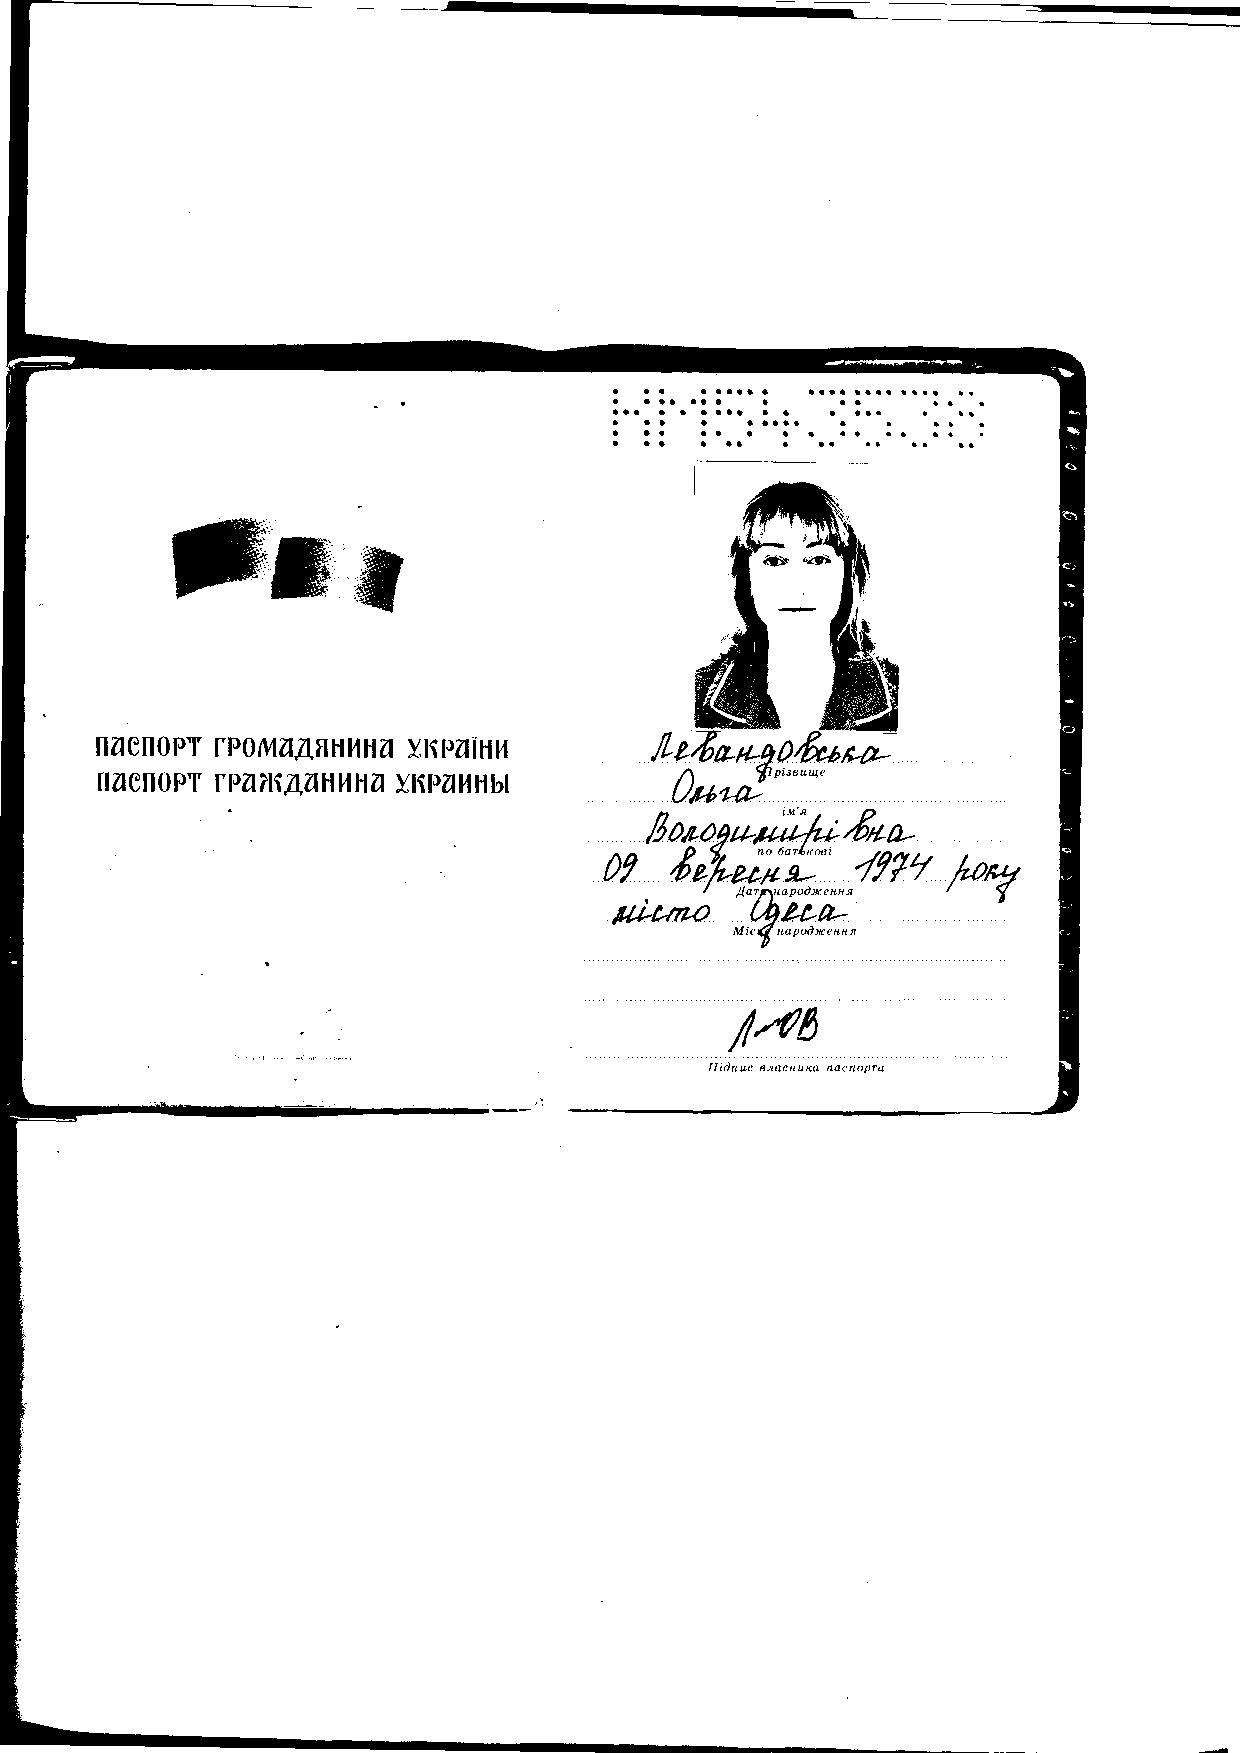 ПАСПОРТ ГРОМАДЯНИНА УКРАЇНИ
ПАСПОРТ ГРАЖДАНИНА УКРАИНЫ
Левандовська
Прізвище
Ольга
ім'я
Володимирівна
по батькові
09 вересня 1974 року
Дата народження
місто Одеса
Місце народження
Підпис власника паспорта